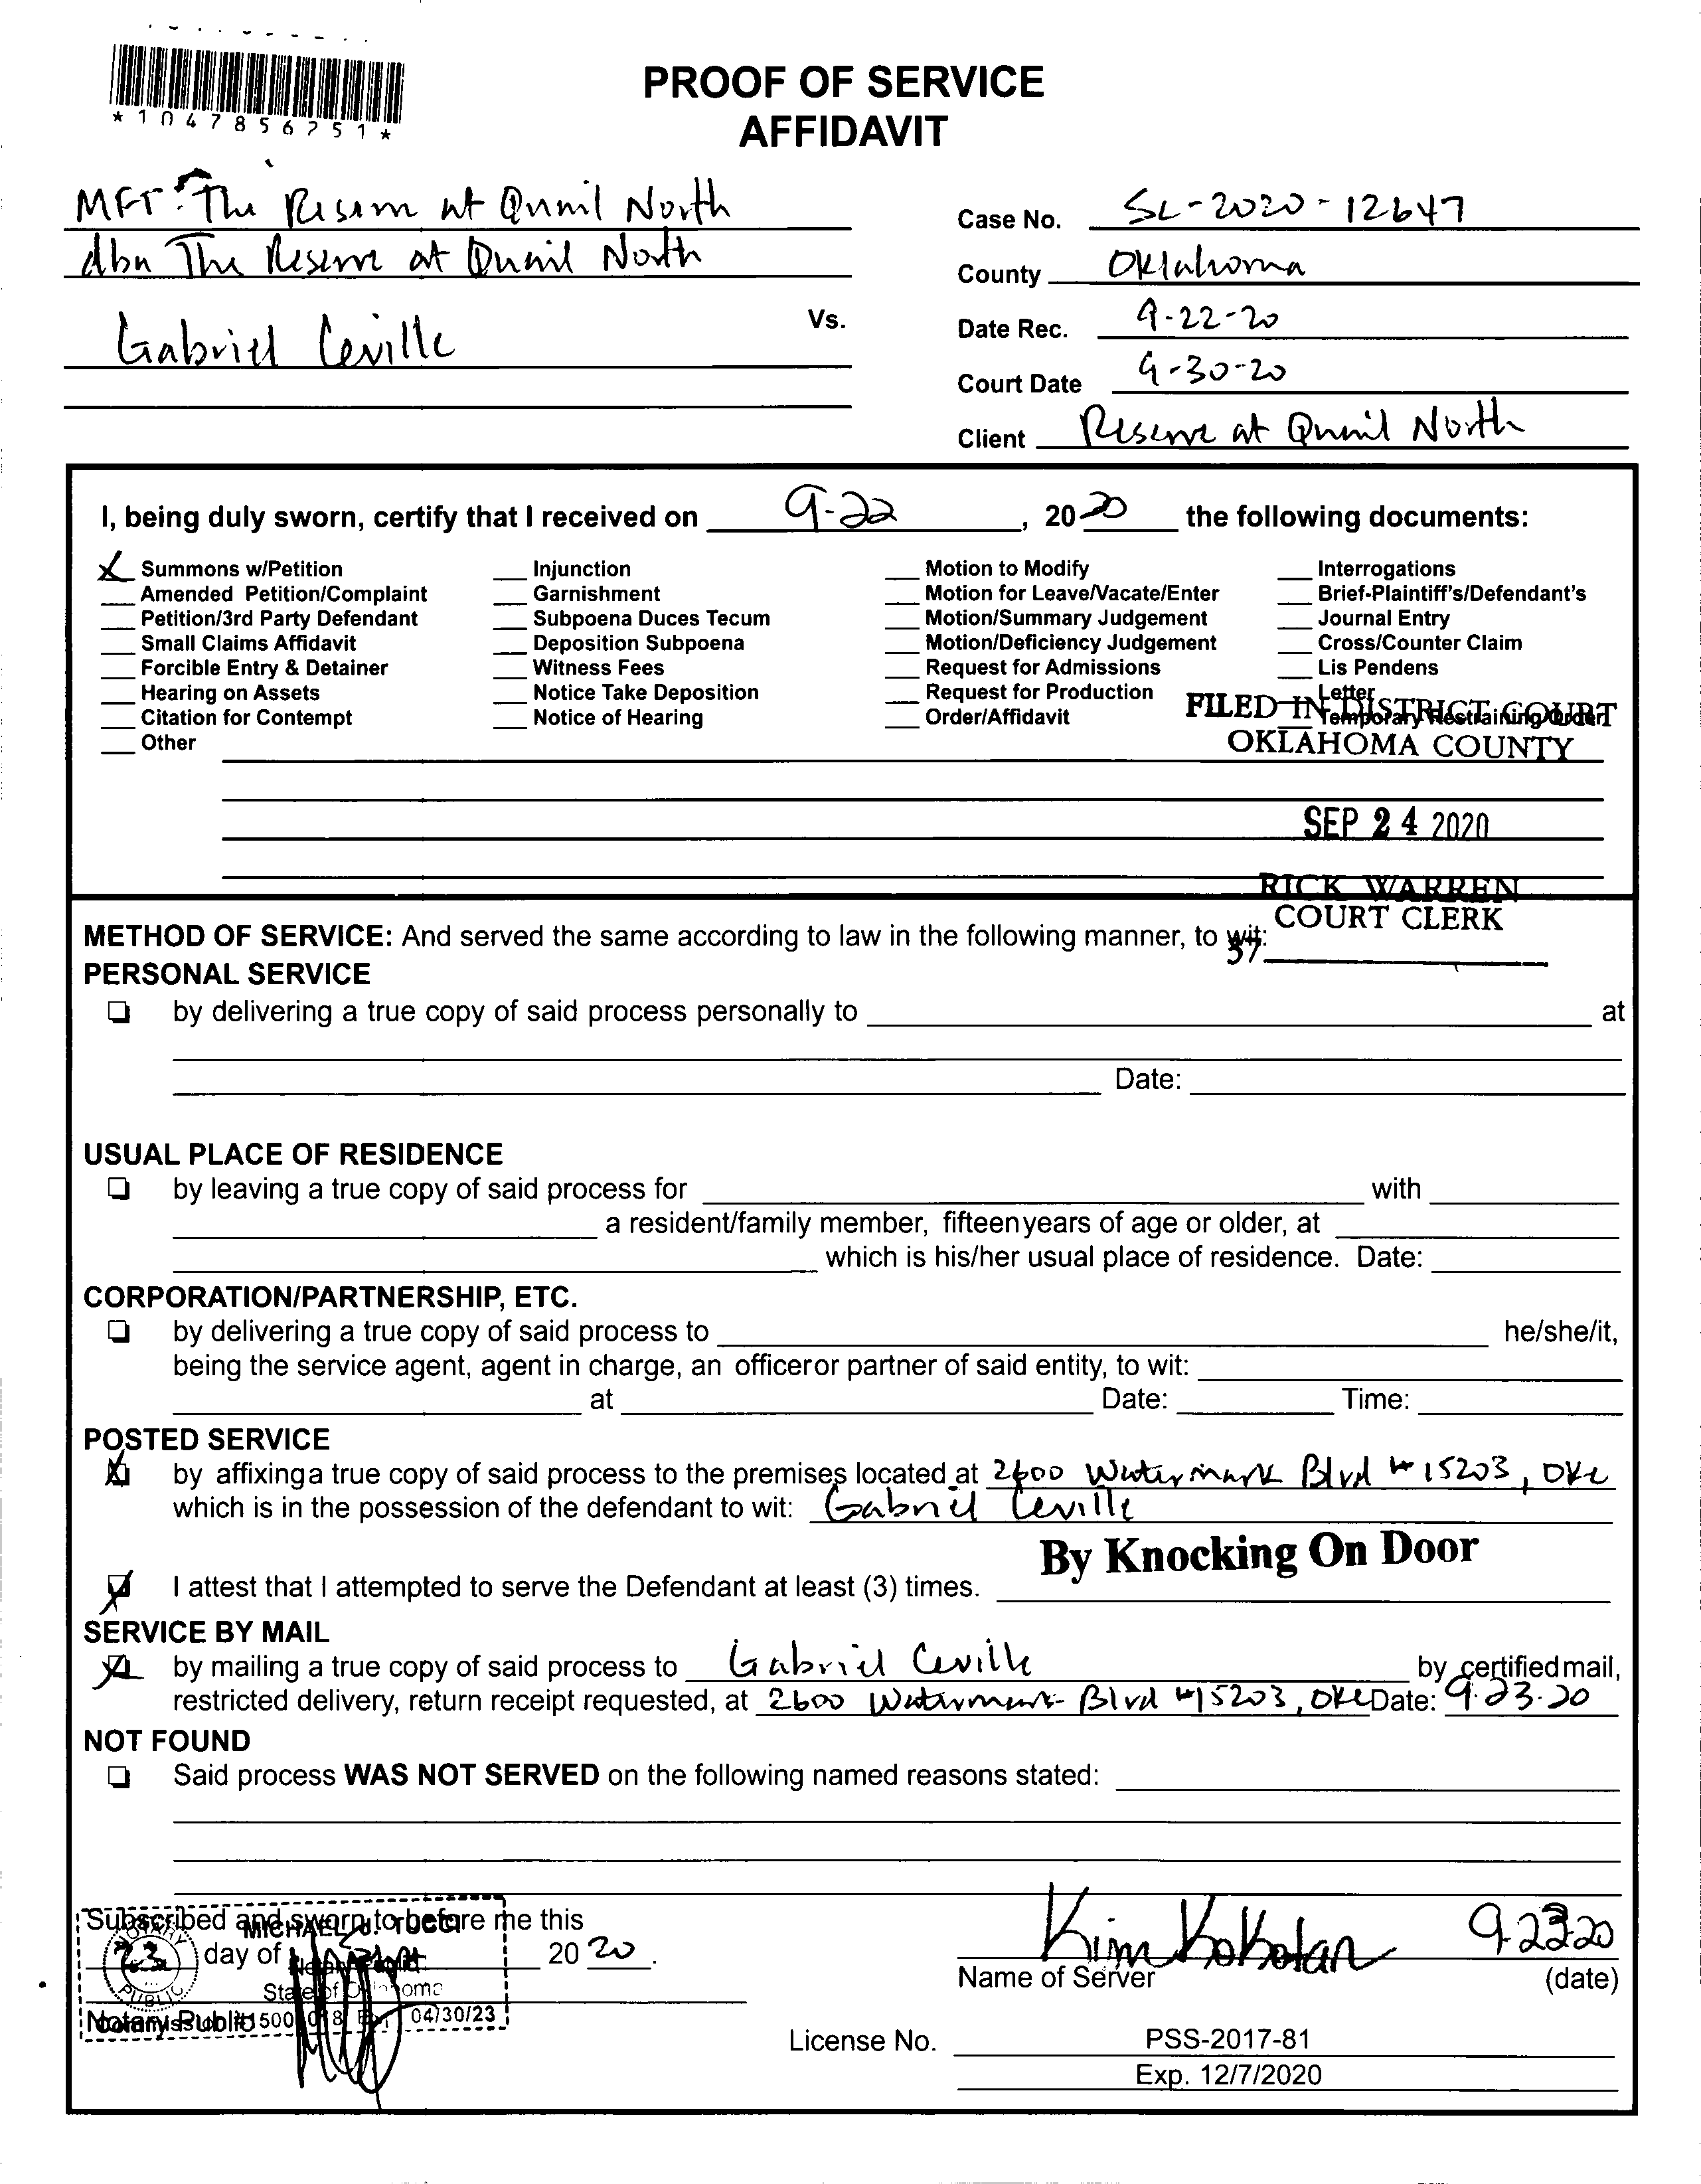 *1047856251*
PROOF OF SERVICE
AFFIDAVIT
MFT-The Reserve at Quail North
dba The Reserve at Quail North
Gabriel Ceville
Vs.
Case No. SC-2020-12647
County Oklahoma
Date Rec. 9-22-20
Court Date 9-30-20
Client Reserve at Quail North
I, being duly sworn, certify that I received on 9-22, 2020 the following documents:
X Summons w/Petition
Amended Petition/Complaint
Petition/3rd Party Defendant
Small Claims Affidavit
Forcible Entry & Detainer
Hearing on Assets
Citation for Contempt
Other
Injunction
Garnishment
Subpoena Duces Tecum
Deposition Subpoena
Witness Fees
Notice Take Deposition
Notice of Hearing
Motion to Modify
Motion for Leave/Vacate/Enter
Motion/Summary Judgement
Motion/Deficiency Judgement
Request for Admissions
Request for Production
Order/Affidavit
Interrogations
Brief-Plaintiff's/Defendant's
Journal Entry
Cross/Counter Claim
Lis Pendens
Letter
Temporary Restraining Order
FILED IN DISTRICT COURT
OKLAHOMA COUNTY
SEP 24 2020
RICK WARREN
COURT CLERK
37
METHOD OF SERVICE: And served the same according to law in the following manner, to wit:
PERSONAL SERVICE
by delivering a true copy of said process personally to at
Date:
USUAL PLACE OF RESIDENCE
by leaving a true copy of said process for with
a resident/family member, fifteen years of age or older, at
which is his/her usual place of residence. Date:
CORPORATION/PARTNERSHIP, ETC.
by delivering a true copy of said process to he/she/it,
being the service agent, agent in charge, an officer or partner of said entity, to wit:
at Date: Time:
POSTED SERVICE
X by affixing a true copy of said process to the premises located at 2600 Watermark Blvd #15203, OKC
which is in the possession of the defendant to wit: Gabriel Ceville
By Knocking On Door
X I attest that I attempted to serve the Defendant at least (3) times.
SERVICE BY MAIL
X by mailing a true copy of said process to Gabriel Ceville by certified mail,
restricted delivery, return receipt requested, at 2600 Watermark Blvd #15203, OKC Date: 9-23-20
NOT FOUND
Said process WAS NOT SERVED on the following named reasons stated:
Subscribed and sworn to before me this
23 day of Sept 2020.
Notary Public
MICHAEL
Notary Public
State of Oklahoma
04/30/23
Kim Kobolan 9-23-20
Name of Server (date)
License No. PSS-2017-81
Exp. 12/7/2020